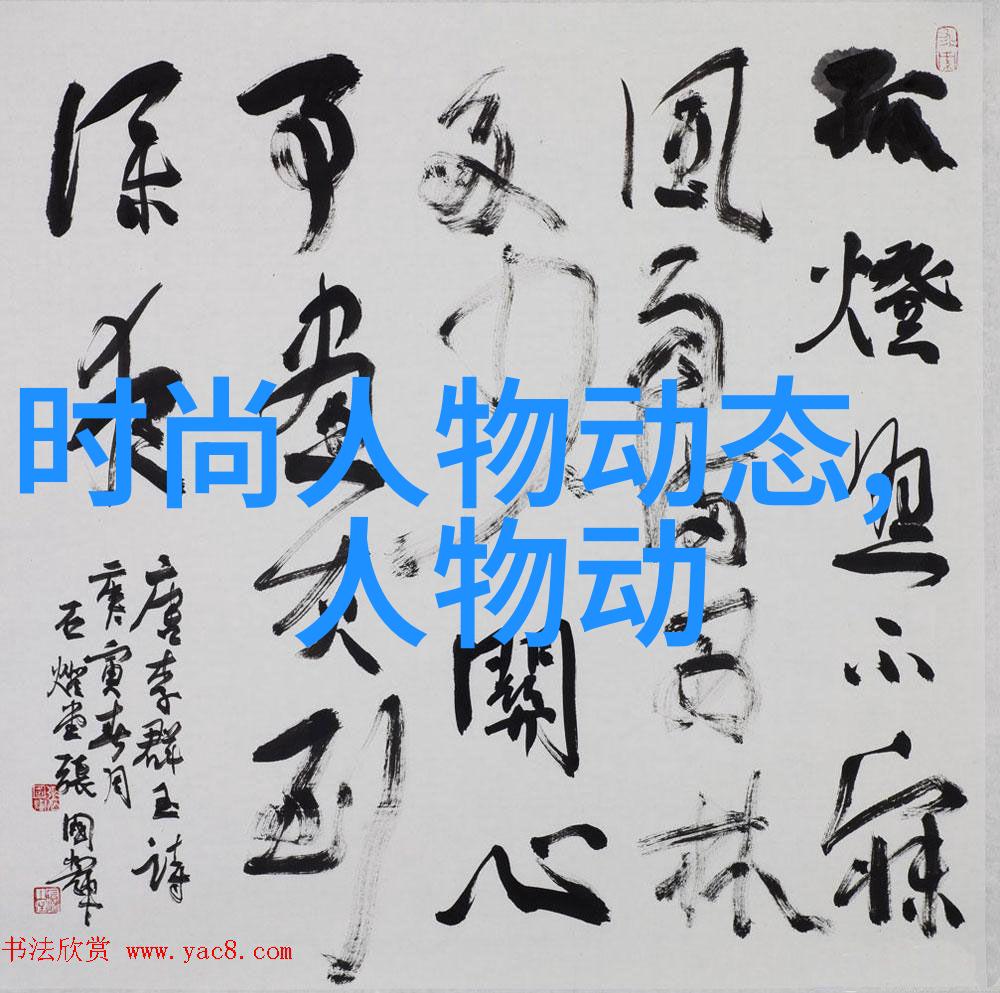 孤燈照不寐
風雨滿西林
多少關心
事畫灰到
深夜
唐李群玉詩
庚寅春月
堂張國
时尚人物动态,
人物动
书法欣赏 www.yac8.com